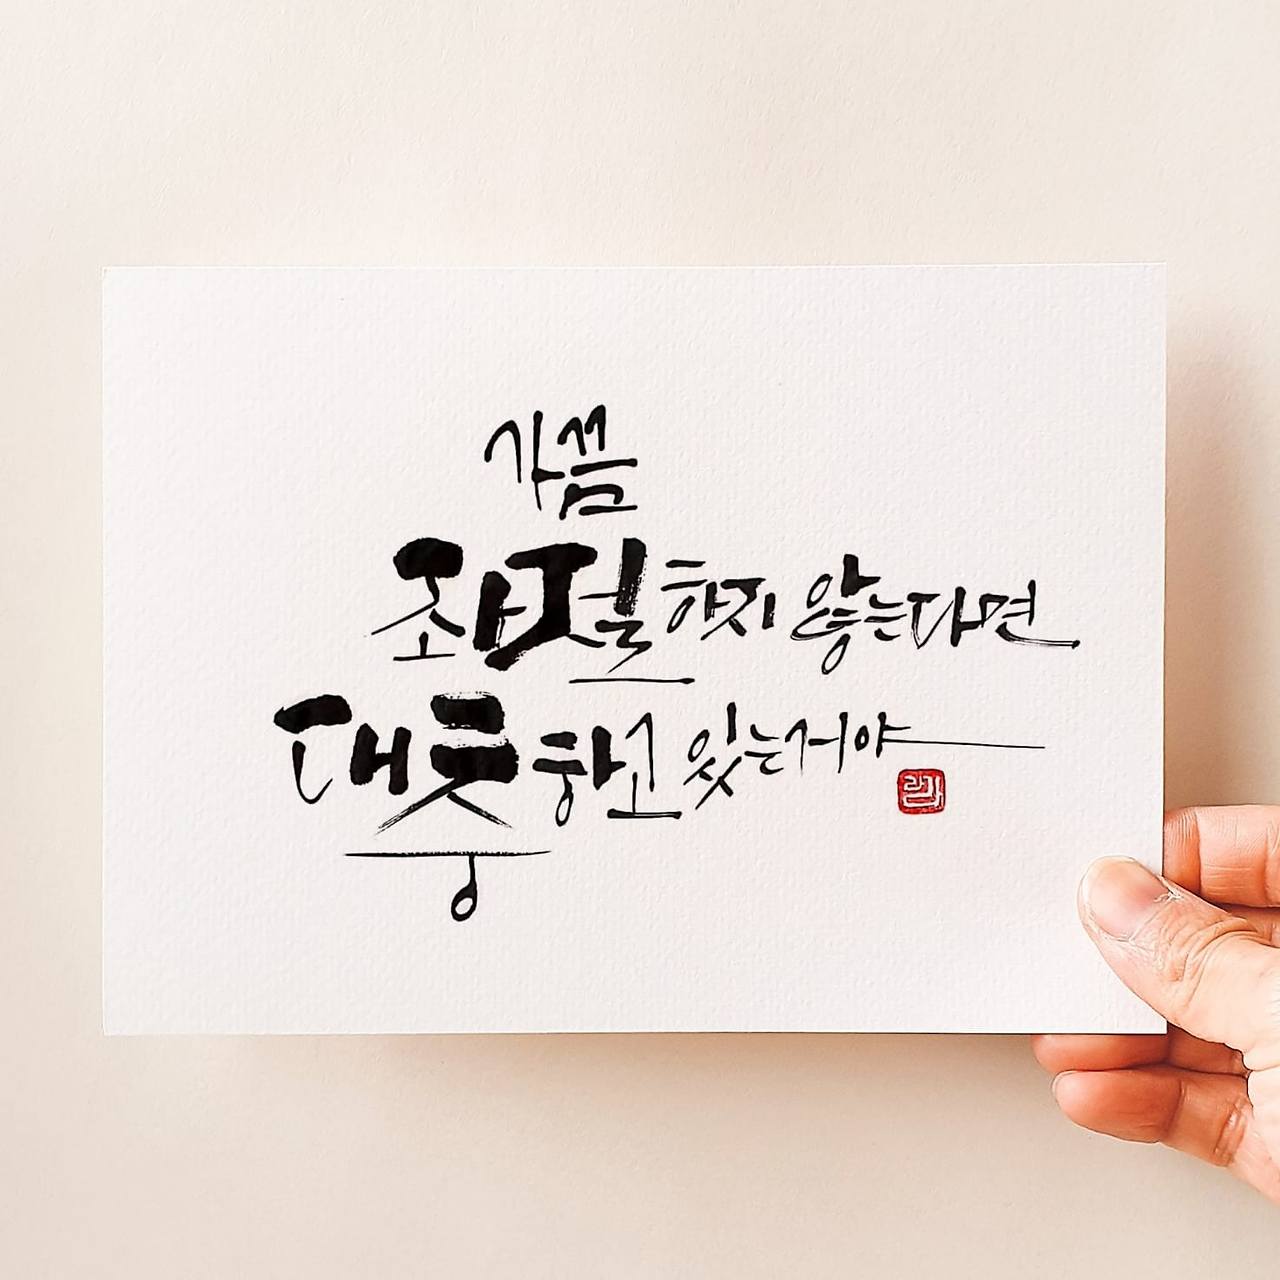 가끔
좌절하지 않는다면
대충하고 있는거야